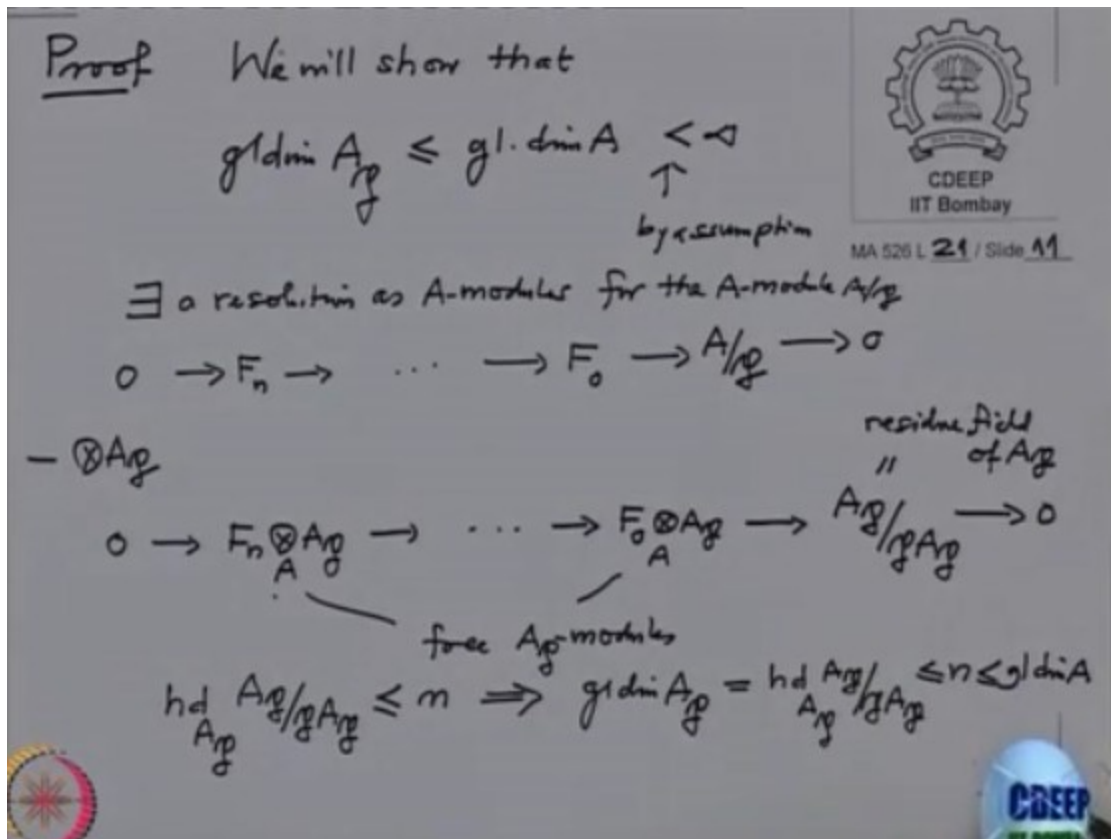 Proof We will show that
gldim A_𝔭 ≤ gl.dim A < ∞
↑
by assumption
CDEEP
IIT Bombay
MA 526 L 21 / Slide 11
∃ a resolution as A-modules for the A-module A/𝔭
0 → F_n → ... → F_0 → A/𝔭 → 0
residue field
of A_𝔭
− ⊗A_𝔭
"
0 → F_n ⊗_A A_𝔭 → ... → F_0 ⊗_A A_𝔭 → A_𝔭/𝔭A_𝔭 → 0
free A_𝔭-modules
hd_{A_𝔭} A_𝔭/𝔭A_𝔭 ≤ n ⟹ gldim A_𝔭 = hd_{A_𝔭} A_𝔭/𝔭A_𝔭 ≤ n ≤ gldim A
CDEEP